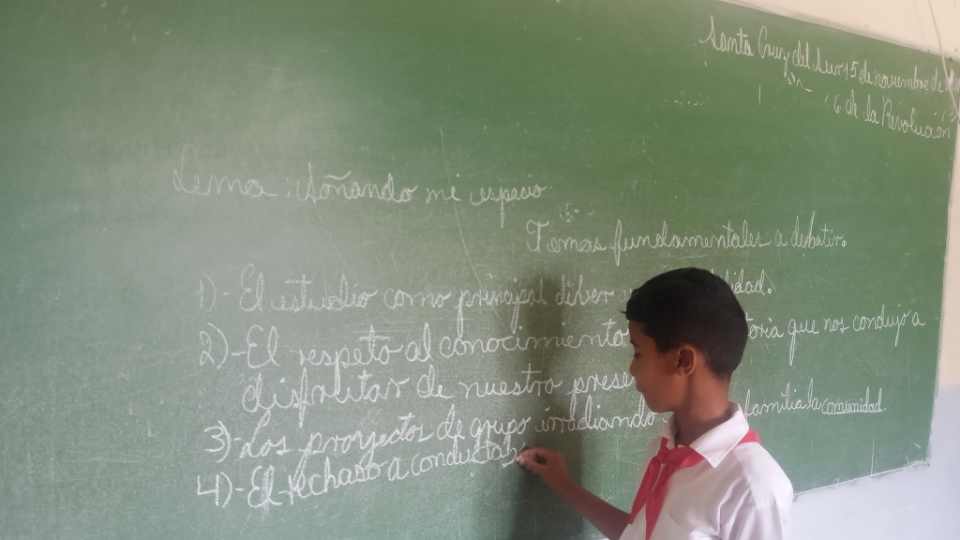 Santa Cruz del Sur 15 de noviembre de
6 de la Revolución
Lema: Soñando mi espacio
Temas fundamentales a debatir.
1)- El estudio como principal deber idad.
2)- El respeto al conocimiento toria que nos condujo a
disfrutar de nuestro prese
3)- Los proryectos de grupo irradiando familia la comunidad
4)- El rechaso a conductas